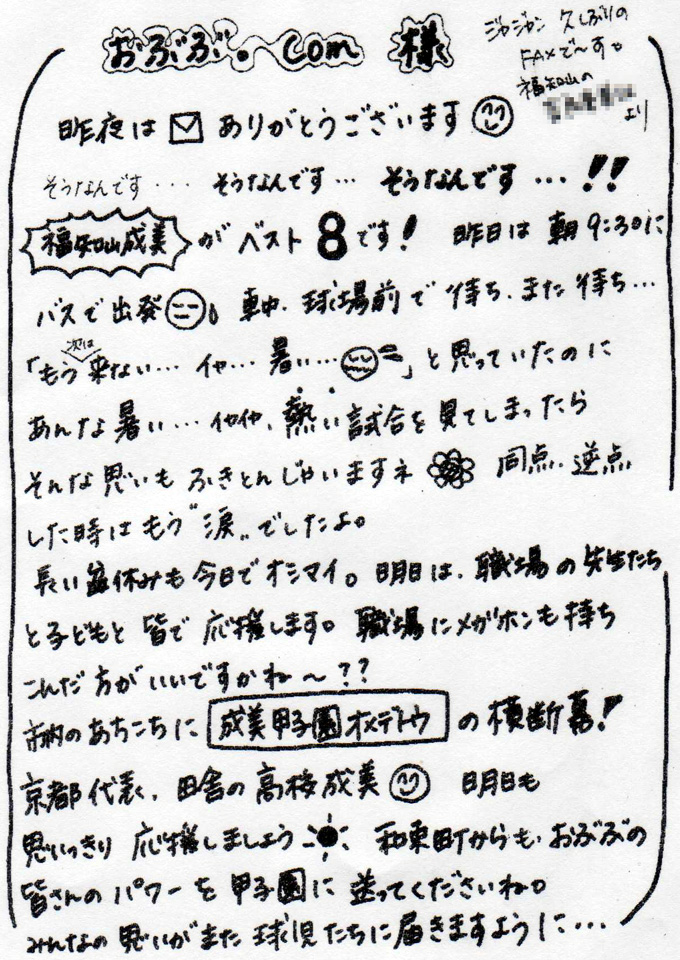 おぶぶ。com 様
ジャジャン 久しぶりの
FAXで〜す。
福知山の
より
昨夜は ありがとうございます
そうなんです・・・ そうなんです… そうなんです…!!
福知山成美 が ベスト 8 です! 昨日は 朝 9:30に
バスで出発 車中、球場前で 待ち、また待ち…
次は
「もう来ない… イヤ… 暑い… 」と思っていたのに
あんな暑い… イヤイヤ、熱い試合を見てしまったら
そんな思いも ふきとんじゃいますネ 同点、逆点
した時はもう〝涙〟でしたよ。
長い盆休みも今日でオシマイ。明日は、職場の先生たち
と子どもと 皆で 応援します。職場にメガホンも持ち
こんだ方がいいですかね〜??
市内のあちこちに 成美甲子園オメデトウ の横断幕!
京都代表、田舎の高校成美 明日も
思いっきり 応援しましょう 和束町からも、おぶぶの
皆さんのパワーを甲子園に 送ってくださいね。
みんなの思いがまた球児たちに届きますように…